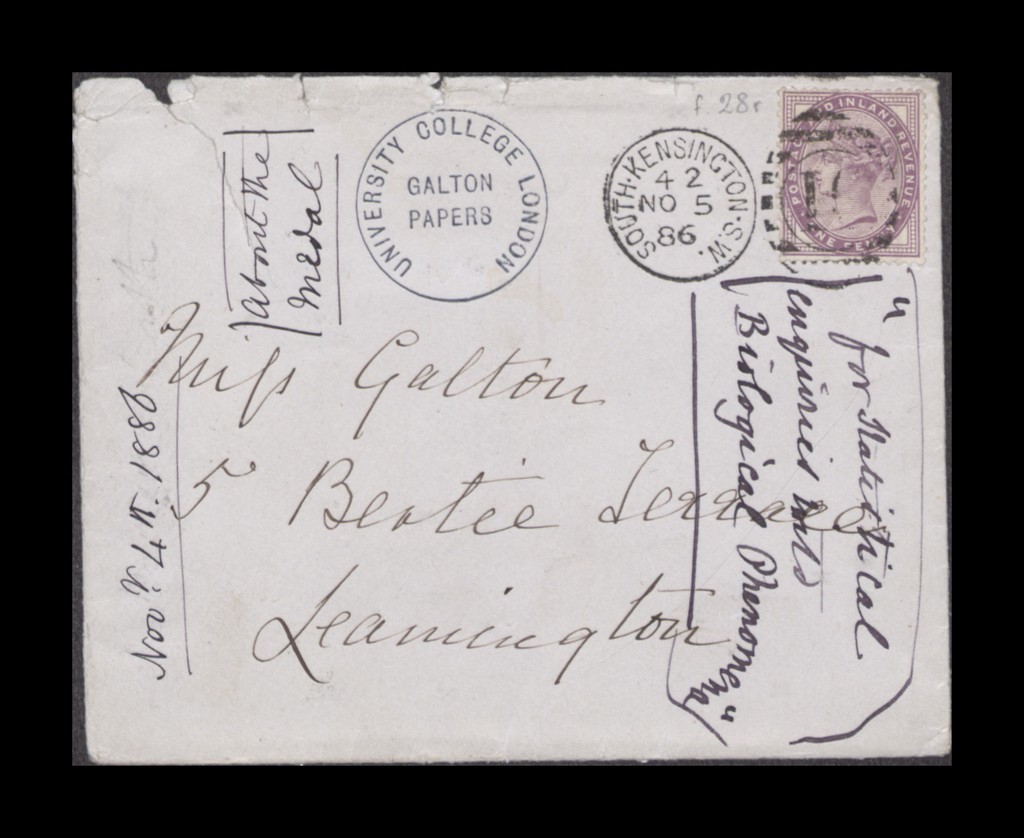 f 28r
about the
Medal
UNIVERSITY COLLEGE LONDON
GALTON
PAPERS
SOUTH·KENSINGTON·S.W.
42
NO 5
86
POSTAGE AND INLAND REVENUE
ONE PENNY
Miss Galton
5 Bertie Terrace
Leamington
Novr. 4th. 1886
"for Statistical
enquiries into
Biological Phenomena"